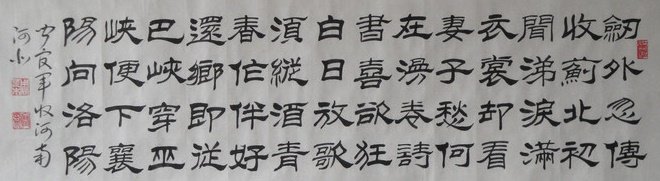 劒外忽傳
收薊北初
聞涕淚滿
衣裳却看
妻子愁何
在漫卷詩
書喜欲狂
白日放歌
須縱酒青
春作伴好
還鄉即從
巴峽穿巫
峽便下襄
陽向洛陽
聞官軍收河南
河北